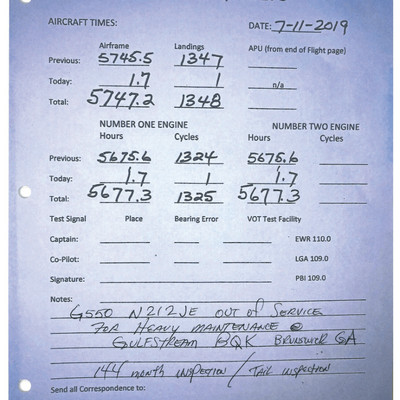 AIRCRAFT TIMES: DATE: 7-11-2019
Airframe Landings APU (from end of Flight page)
Previous: 5745.5 1347
Today: 1.7 1 n/a
Total: 5747.2 1348
NUMBER ONE ENGINE NUMBER TWO ENGINE
Hours Cycles Hours Cycles
Previous: 5675.6 1324 5675.6
Today: 1.7 1 1.7
Total: 5677.3 1325 5677.3
Test Signal Place Bearing Error VOT Test Facility
Captain: EWR 110.0
Co-Pilot: LGA 109.0
Signature: PBI 109.0
Notes: G550 N212JE OUT OF SERVICE
FOR HEAVY MAINTENANCE @
GULFSTREAM BQK BRUNSWICK GA
144 MONTH INSPECTION / TAIL INSPECTION
Send all Correspondence to: